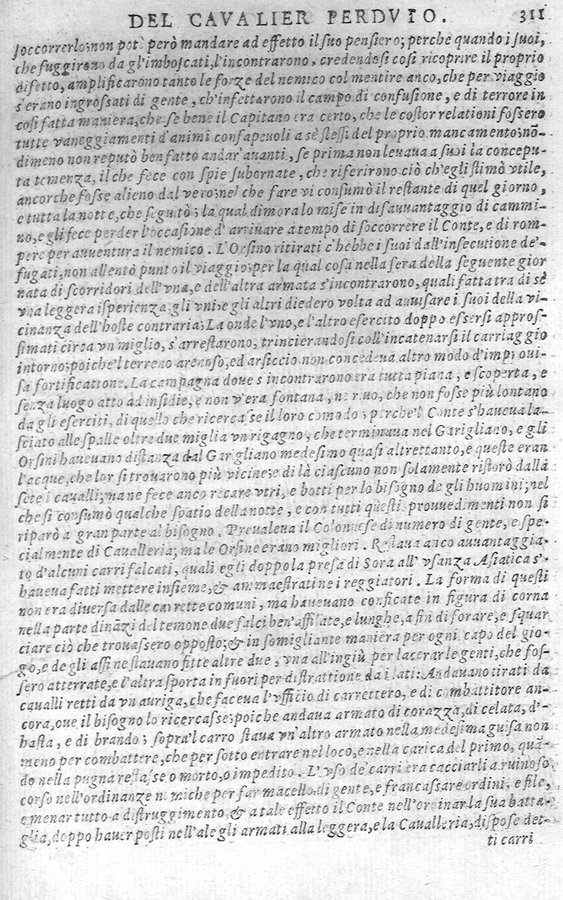 DEL CAVALIER PERDVTO. 311
soccorrerlo; non potè però mandare ad effetto il suo pensiero; perche quando i suoi,
che fuggirono da gl'imboscati, l'incontrarono, credendosi così ricoprire il proprio
difetto, amplificarono tanto le forze del nemico col mentire anco, che per viaggio
s'erano ingrossati di gente, ch'infettarono il campo di confusione, e di terrore in
così fatta maniera, che se bene il Capitano era certo, che le costor relationi fossero
tutte vaneggiamenti d'animi consapeuoli a sè stessi del proprio mancamento; nō
dimeno non reputò ben fatto andar'auanti, se prima non leuaua a suoi la concepu-
ta temenza, il che fece con spie subornate, che riferirono ciò ch'egli stimò vtile,
ancorche fosse alieno dal vero; nel che fare vi consumò il restante di quel giorno,
e tutta la notte, che seguitò; la qual dimora lo mise in disauuantaggio di cammi-
no, e gli fece perder l'occasione d'arriuare a tempo di soccorrere il Conte, e di rom-
pere per auuentura il nemico. L'Orsino ritirati c'hebbe i suoi dall'insecutione de'
fugati, non allentò punto il viaggio; per la qual cosa nella sera della seguente gior
nata di scorridori dell'vna, e dell'altra armata s'incontrarono, quali fatta tra di sè
vna leggera isperienza, gli vni e gli altri diedero volta ad auuisare i suoi della vi-
cinanza dell'hoste contraria: La onde l'vno, e l'altro esercito doppo essersi appros-
simati circa vn miglio, s'arrestarono, trincierandosi coll'incatenarsi il carriaggio
intorno; poiche'l terreno arenoso, ed arsiccio non concedeua altro modo d'improui-
sa fortificatione. La campagna doue s'incontrarono era tutta piana, e scoperta, e
senza luogo atto ad insidie, e non v'era fontana, ne riuo, che non fosse più lontano
da gli eserciti, di quello che ricercasse il loro comodo; perche'l Conte s'haueua la-
sciato alle spalle oltre due miglia vn rigagno, che terminaua nel Garigliano, e gli
Orsini haueuano distanza dal Garigliano medesimo quasi altrettanto, e queste eran
l'acque, che lor si trouarono più vicine; e di là ciascuno non solamente ristorò dalla
sete i caualli; ma ne fece anco recare vtri, e botti per lo bisogno de gli huomini; nel
che si consumò qualche spatio della notte, e con tutti questi prouuedimenti non si
riparò a gran parte al bisogno. Preualeua il Colonnese di numero di gente, e spe-
cialmente di Caualleria; ma le Orsine erano migliori. Restaua anco auuantaggia-
to d'alcuni carri falcati, quali egli doppo la presa di Sora all'vsanza Asiatica s'
haueua fatti mettere insieme, & ammaestratine i reggiatori. La forma di questi
non era diuersa dalle carrette comuni, ma haueuano conficate in figura di corna
nella parte dināzi del temone due falci ben'affilate, e lunghe, a fin di forare, e squar
ciare ciò che trouassero opposto; & in somigliante maniera per ogni capo del gio-
go, e de gli assi ne stauano fitte altre due, vna all'ingiù per lacerar le genti, che fos-
sero atterrate, e l'altra sporta in fuori per distrattione da i lati: Andauano tirati da
caualli retti da vn auriga, che faceua l'vfficio di carrettero, e di combattitore an-
cora, oue il bisogno lo ricercasse; poiche andaua armato di corazza, di celata, d'
hasta, e di brando; sopra'l carro staua vn'altro armato nella medesima guisa non
meno per combattere, che per sotto entrare nel loco, e nella carica del primo, quā-
do nella pugna restasse o morto, o impedito. L'vso de' carri era cacciarli a ruinoso
corso nell'ordinanze nimiche per far macello di gente, e francassare ordini, e file,
e menar tutto a distruggimento, & a tale effetto il Conte nell'ordinar la sua batta-
glia, doppo hauer posti nell'ale gli armati alla leggera, e la Caualleria, dispose det-
ti carri